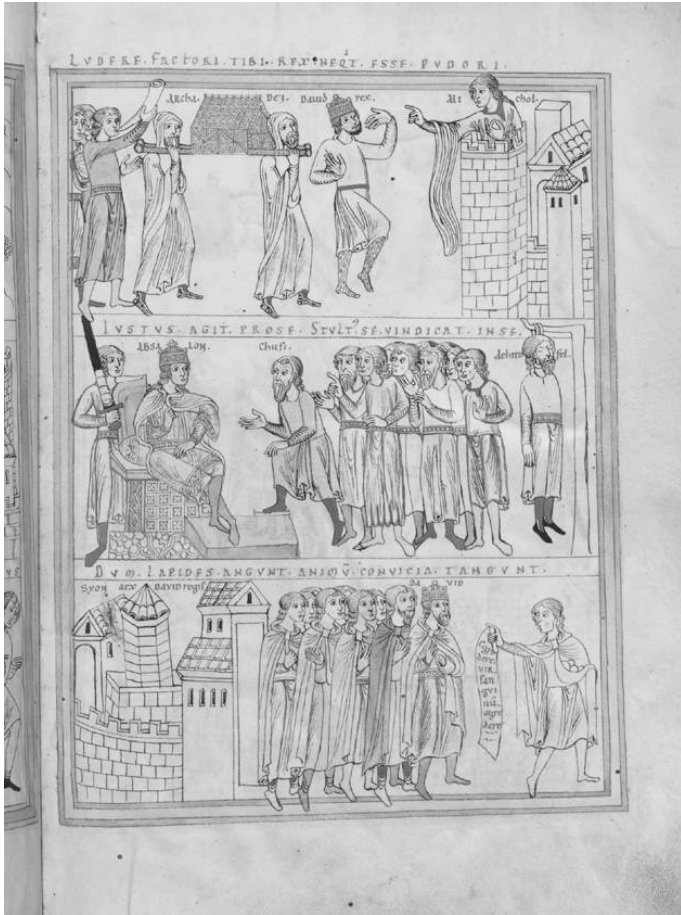 LVDERE · FACTORI · TIBI · REX · NEQⁱT · ESSE · PVDORI .
ARChA . DEI . DAVID rex . MI chol .
IVSTVS · AGIT · PROSE · STVLTꝰ · SE · VINDICAT · INSE .
ABSA LON . Chusi . Achito fel .
DVM · LAPIDES · ANGVNT · ANIMV̄ · CONVICIA · TANGVNT .
SYON arx DAVID regis DA VID
dere
vir
san
gui
nū .
egre
dere